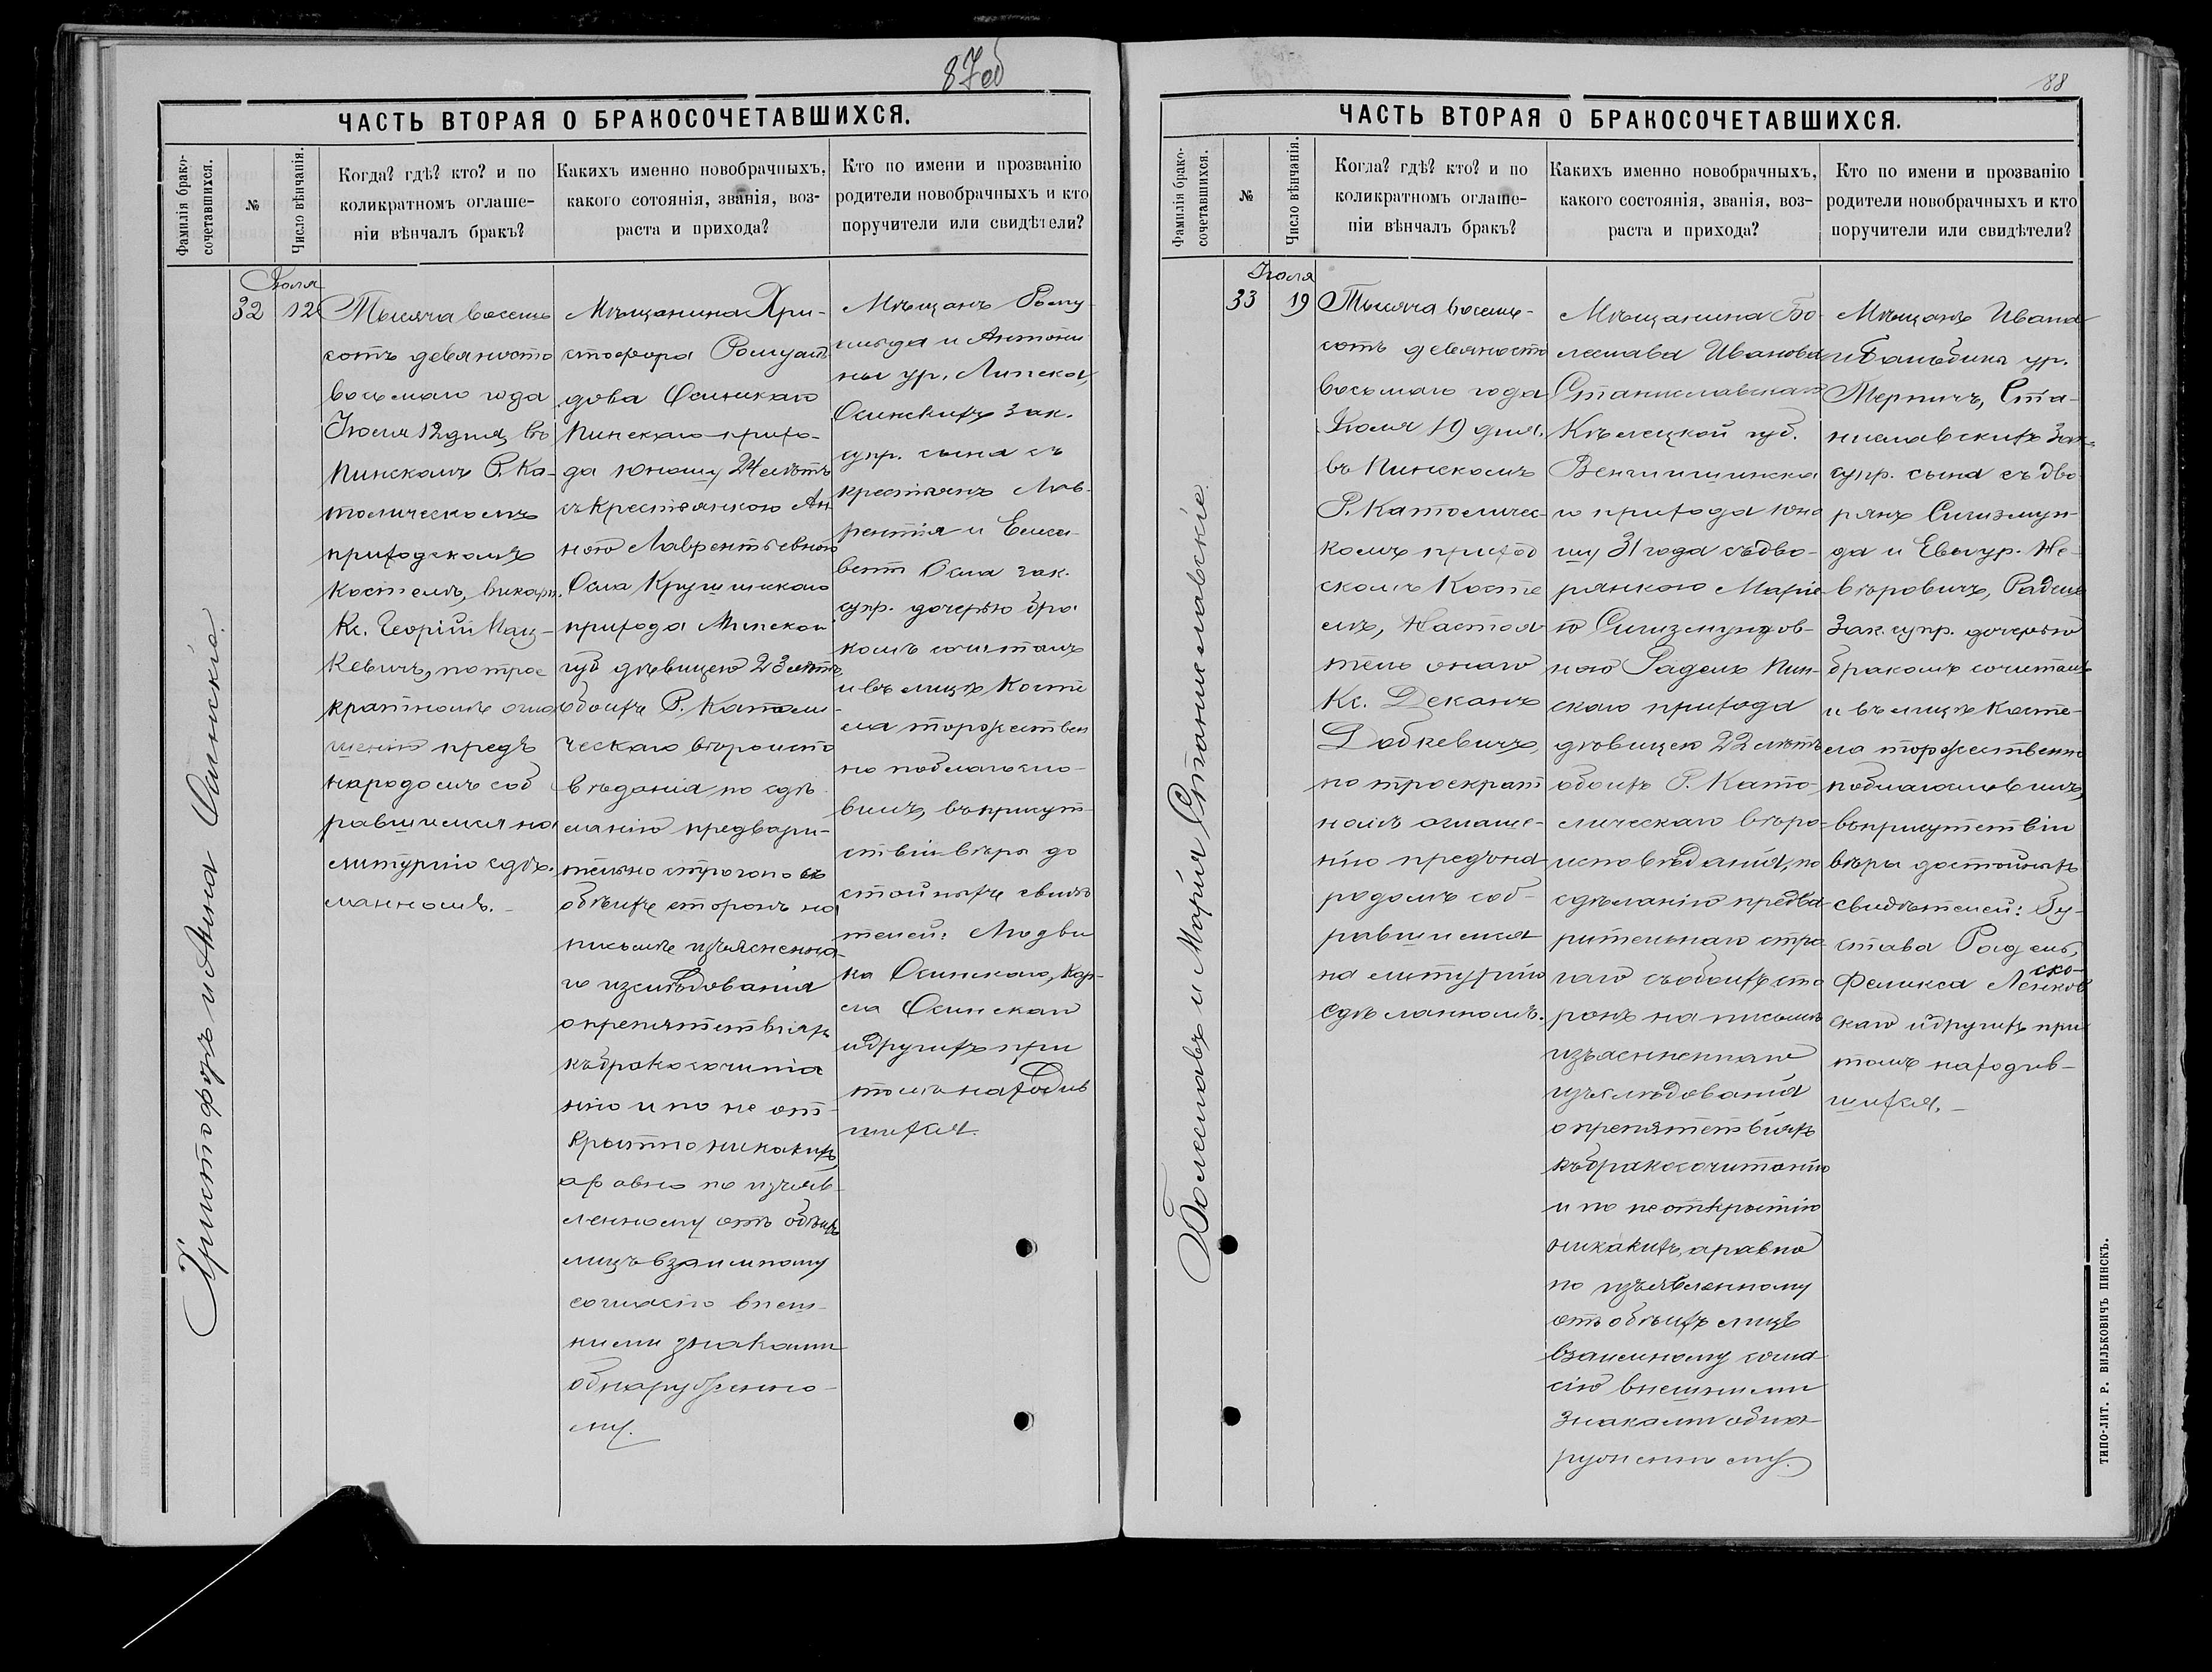 87об
ЧАСТЬ ВТОРАЯ О БРАКОСОЧЕТАВШИХСЯ.
Фамилія брако-
сочетавшихся.
№
Число вѣнчанія.
Когда? гдѣ? кто? и по
коликратномъ оглаше-
ніи вѣнчалъ бракъ?
Какихъ именно новобрачныхъ,
какого сотоянія, званія, воз-
раста и прихода?
Кто по имени и прозванію
родители новобрачныхъ и кто
поручители или свидѣтели?
Христофоръ и Анна Осинскіе.
Іюля
32
12
Тысяча восемь
сотъ девяносто
восьмаго года
Іюля 12 дня, въ
Пинскомъ Р. Ка-
толическомъ
приходскомъ
Костелѣ, викарій
Кс. Георгій Мац-
кевичъ, по трое
кратномъ огла
шенію предъ
народомъ соб
равшимся на
литургію сдѣ-
ланномъ.
Мѣщанина Хри-
стофора Ромуаль
дова Осинскаго
Пинскаго прихо-
да юношу 24 лѣтъ
съ крестьянкою Ан
ною Лаврентьевною
Осма
прихода Минской
губ дѣвицею 23 лѣтъ
обоихъ Р. Католи
ческаго вѣроиспо
вѣданія, по сдѣ
ланію предвари-
тельно строгаго съ
обѣихъ сторонъ на
письмѣ изъясненна
го изслѣдованія
о препятствіяхъ
къ бракосочита
нію и по не от-
крытію никакихъ,
а равно по изъяв-
ленному отъ обѣихъ
лицъ взаимному
согласію внеш-
ними знаками
обнаруженно-
му.
Мѣщанъ Рому
альда и Антони
ны ур. Липская,
Осинскихъ зак.
супр. сына съ
крестьянъ Лав-
рентія и Елиса
ветъ Осма зак.
супр. дочерью бра
комъ сочиталъ
и въ лицѣ Косте
ла торжествен
но поблагосло-
вилъ, въ присут-
ствіи вѣры до
стойныхъ свидѣ
телей: Людви
ка Осинскаго, Кар-
ла Осинскаго
и другихъ при
томъ находив
шихся.
88
ЧАСТЬ ВТОРАЯ О БРАКОСОЧЕТАВШИХСЯ.
Фамилія брако-
сочетавшихся.
№
Число вѣнчанія.
Когда? гдѣ? кто? и по
коликратномъ оглаше-
ніи вѣнчалъ бракъ?
Какихъ именно новобрачныхъ,
какого состоянія, званія, воз-
раста и прихода?
Кто по имени и прозванію
родители новобрачныхъ и кто
поручители или свидѣтели?
Болеславъ и Марія Станиславскіе.
Іюля
33
19
Тысяча восемь-
сотъ девяносто
восьмаго года
Іюля 19 дня.
въ Пинскомъ
Р. Католичес-
комъ приход
скомъ Косте
лѣ, Настоя
тель онаго
Кс. Деканъ
по троекрат
номъ оглаше-
нію предъ на-
родомъ соб-
равшимся
на литургію
сдѣланномъ.
Мѣщанина Бо-
леслава Иванова
Станиславскаго
Кѣлецкой губ.
го прихода юно
шу 31 года съ дво-
рянкою Марію
ю Сигизмундов-
ною Радель Пин-
скаго прихода
дѣвицею 22 лѣтъ
обоихъ Р. Като-
лическаго вѣро-
исповѣданія, по
сдѣланію предва-
рительнаго стро
гаго съ обоихъ сто
ронъ на письмѣ
изъясненнаго
изъслѣдованія
о препятствіяхъ
къ бракосочитанію
и по не открытію
никакихъ, а равно
по изъявленному
отъ обѣихъ лицъ
взаимному согла-
сію внешними
знаками обна-
руженному.
Мѣщанъ Ивана
и ур.
Станиславскихъ Зак-
супр. сына съ дво
рянъ Сигизмун-
да и Евы ур. Не-
вѣровичъ, Радель
Зак. супр. дочерью
бракомъ сочиталъ
и въ лицѣ Косте-
ла торжественно
поблагословилъ,
въ присутствіи
вѣры достойныхъ
свидѣтелей: Гу-
става Радель,
Феликса
скаго и другихъ при
томъ находив-
шихся.
ТИПО-ЛИТ. Р. ВИЛЬКОВИЧЪ ПИНСКЪ.